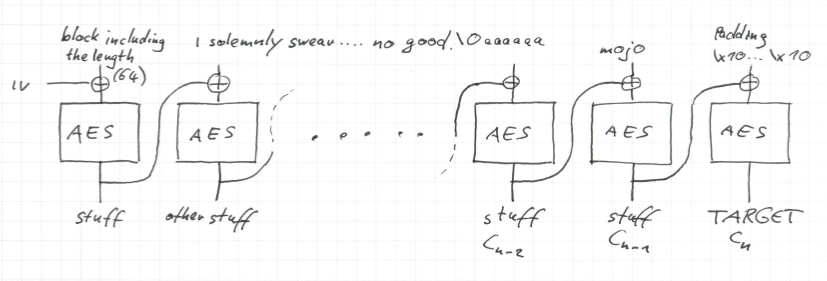 block including
the length
(64)
I solemnly swear.... no good.\0aaaaaa
mojo
Padding
\x10... \x10
IV
AES
AES
AES
AES
AES
stuff
other stuff
stuff
stuff
TARGET
Cn-2
Cn-1
Cn